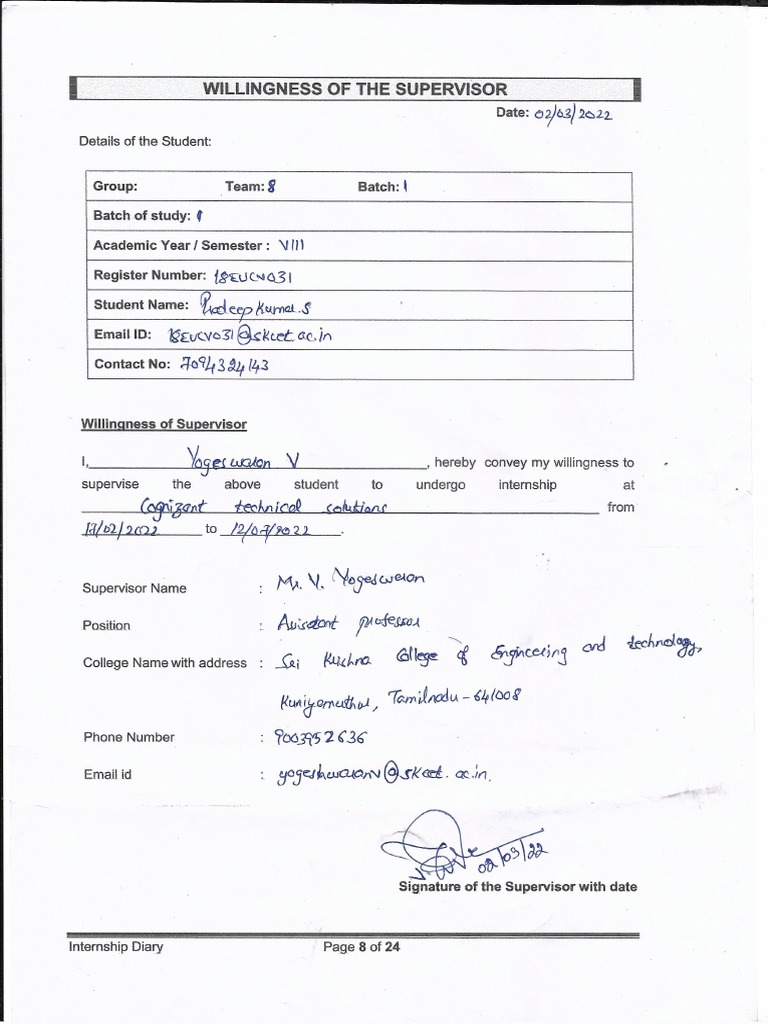 WILLINGNESS OF THE SUPERVISOR
Date: 02/03/2022
Details of the Student:
Group: Team: 8 Batch: 1
Batch of study: 1
Academic Year / Semester : VIII
Register Number: 18EUCV031
Student Name: Pradeep Kumar.S
Email ID: 18EUCV031@skcet.ac.in
Contact No: 7094324143
Willingness of Supervisor
I, Yogeswaran V, hereby convey my willingness to
supervise the above student to undergo internship at
Cognizant technical solutions from
17/02/2022 to 12/07/2022.
Supervisor Name : Mr. V. Yogeswaran
Position : Assistant professor
College Name with address : Sri Krishna College of Engineering and technology,
Kuniyamuthur, Tamilnadu - 641008
Phone Number : 9003952636
Email id : yogeshwaranv@skcet.ac.in.
02/03/22
Signature of the Supervisor with date
Internship Diary Page 8 of 24